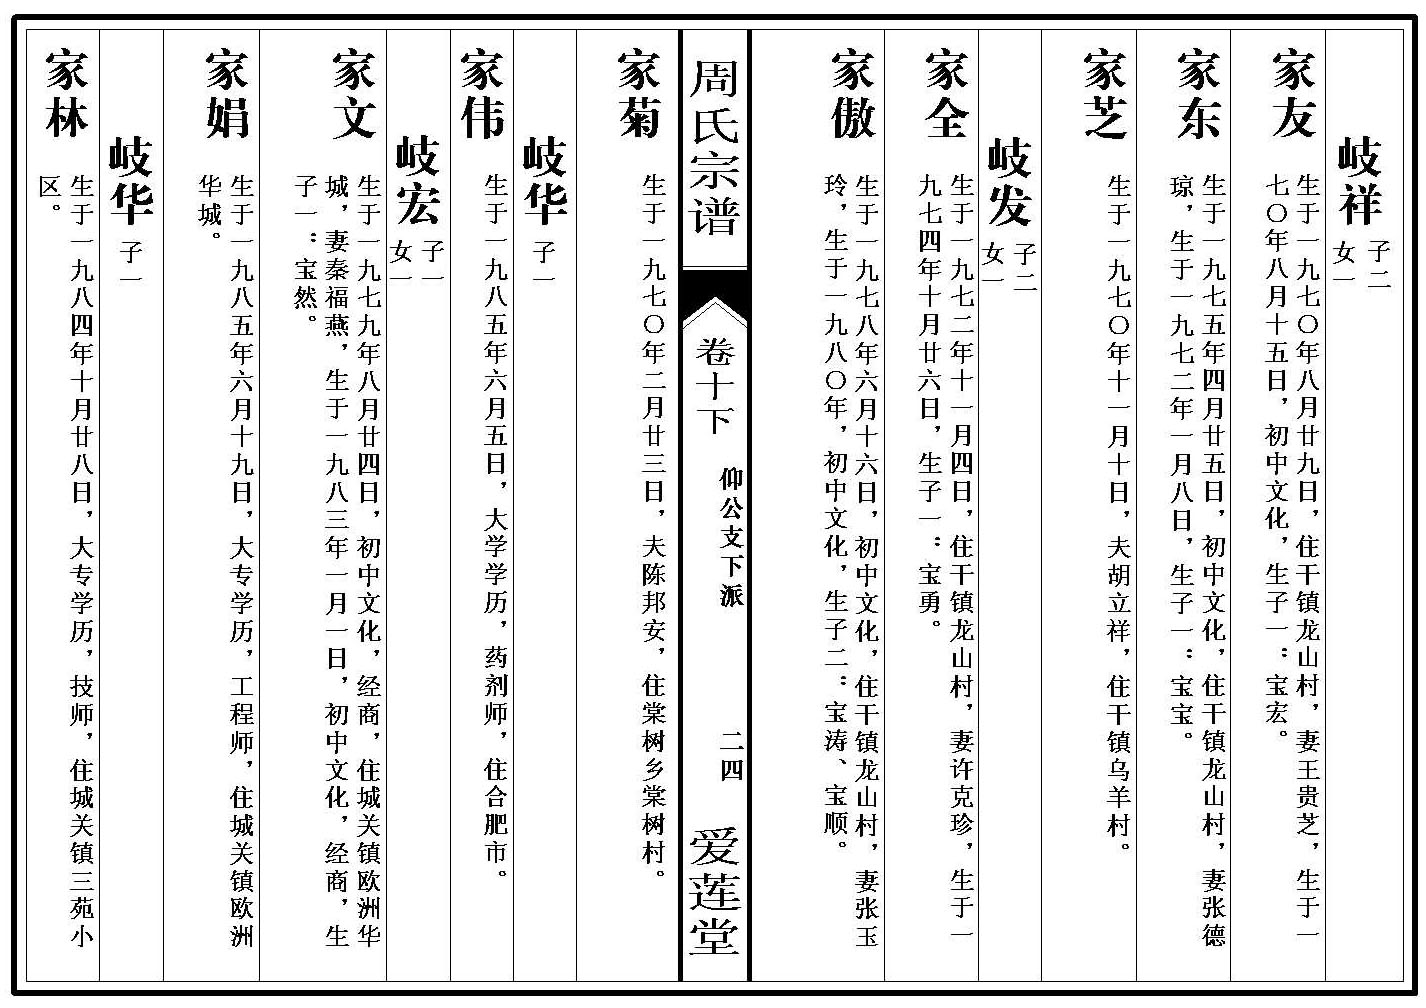 岐祥
子二
女一
家友
生于一九七〇年八月廿九日，住干镇龙山村，妻王贵芝，生于一
七〇年八月十五日，初中文化，生子一：宝宏。
家东
生于一九七五年四月廿五日，初中文化，住干镇龙山村，妻张德
琼，生于一九七二年一月八日，生子一：宝宝。
家芝
生于一九七〇年十一月十日，夫胡立祥，住干镇乌羊村。
岐发
子二
女一
家全
生于一九七二年十一月四日，住干镇龙山村，妻许克珍，生于一
九七四年十月廿六日，生子一：宝勇。
家傲
生于一九七八年六月十六日，初中文化，住干镇龙山村，妻张玉
玲，生于一九八〇年，初中文化，生子二：宝涛、宝顺。
周氏宗谱
卷十下
仰公支下派
二四
爱莲堂
家菊
生于一九七〇年二月廿三日，夫陈邦安，住棠树乡棠树村。
岐华
子一
家伟
生于一九八五年六月五日，大学学历，药剂师，住合肥市。
岐宏
子一
女一
家文
生于一九七九年八月廿四日，初中文化，经商，住城关镇欧洲华
城，妻秦福燕，生于一九八三年一月一日，初中文化，经商，生
子一：宝然。
家娟
生于一九八五年六月十九日，大专学历，工程师，住城关镇欧洲
华城。
岐华
子一
家林
生于一九八四年十月廿八日，大专学历，技师，住城关镇三苑小
区。